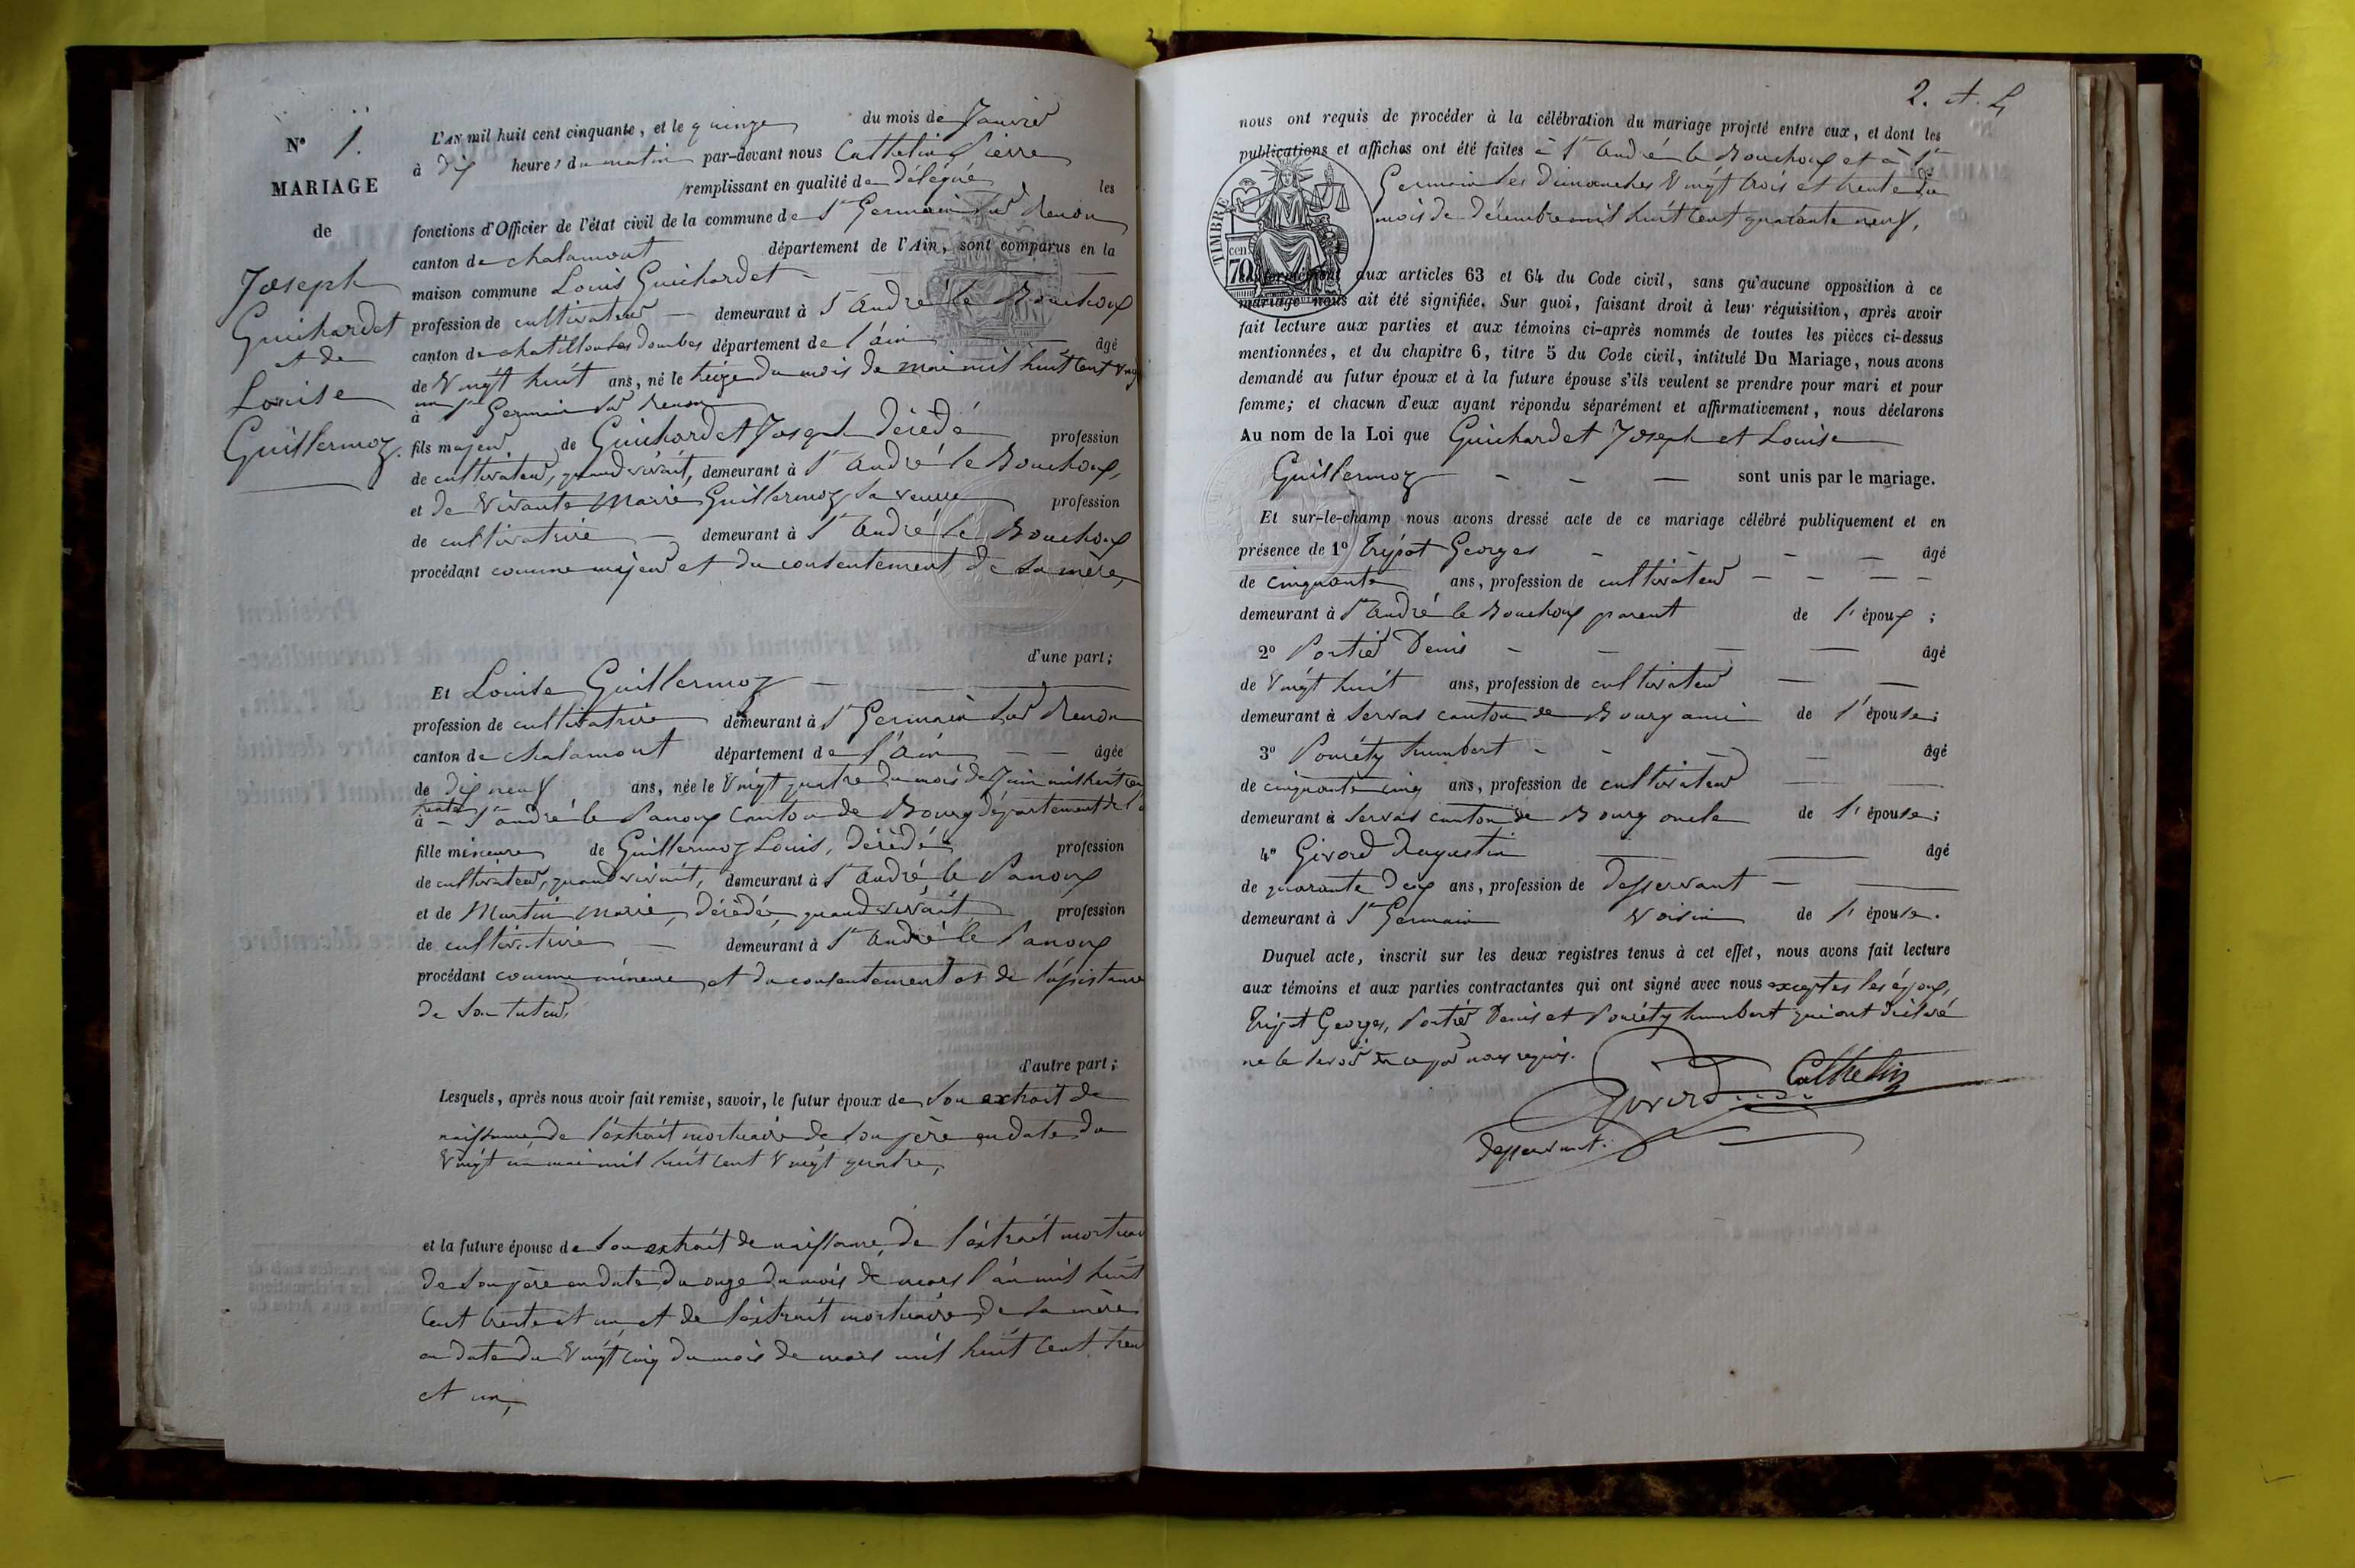 N° 1.
MARIAGE
de
Joseph
Guichardet
et de
Louise
Guillermoz.
L'AN mil huit cent cinquante, et le quinze du mois de Janvier
à dix heures du matin par-devant nous Cathelin Pierre
remplissant en qualité de délégué les
fonctions d'Officier de l'état civil de la commune de St Germain sur Renon
canton de chalamont département de l'Ain, sont comparus en la
maison commune Louis Guichardet
profession de cultivateur demeurant à St André le Bouchoux
canton de chatillon les dombes département de l'ain âgé
de Vingt huit ans, né le treize du mois de mai mil huit cent vingt
un
à St Germain sur renon
fils majeur de Guichardet Joseph décédé profession
de cultivateur, quand vivait, demeurant à St André le Bouchoux,
et de Vivante Marie Guillermoz sa veuve profession
de cultivatrice demeurant à St André le Bouchoux
procédant comme majeur et du consentement de sa mère,
d'une part;
Et Louise Guillermoz
profession de cultivatrice demeurant à St Germain sur Renon
canton de chalamont département de l'Ain âgée
de dix neuf ans, née le Vingt quatre du mois de Juin mil huit cent
trente
à St andré le Panoux Canton de Bourg département de l'a
fille mineure de Guillermoz Louis, décédé profession
de cultivateur, quand vivait, demeurant à St André le Panoux
et de Martin Marie, décédée, quand vivait profession
de cultivatrice demeurant à St André le Panoux
procédant comme mineure et du consentement et de l'assistance
de son tuteur,
d'autre part;
Lesquels, après nous avoir fait remise, savoir, le futur époux de son extrait de
naissance, de l'extrait mortuaire de son père en date du
Vingt un mai mil huit cent Vingt quatre,
et la future épouse de son extrait de naissance, de l'extrait mortuaire
de son père en date du onze du mois de mars l'an mil huit
cent trente et un, et de l'extrait mortuaire de sa mère
en date du Vingt cinq du mois de mars mil huit cent tren
et un,
2. A. L
nous ont requis de procéder à la célébration du mariage projeté entre eux, et dont les
publications et affiches ont été faites à St André le Bouchoux et à St
Germain les dimanches Vingt trois et trente du
mois de décembre mil huit cent quarante neuf,
TIMBRE
cen
70
conformément aux articles 63 et 64 du Code civil, sans qu'aucune opposition à ce
mariage nous ait été signifiée. Sur quoi, faisant droit à leur réquisition, après avoir
fait lecture aux parties et aux témoins ci-après nommés de toutes les pièces ci-dessus
mentionnées, et du chapitre 6, titre 5 du Code civil, intitulé Du Mariage, nous avons
demandé au futur époux et à la future épouse s'ils veulent se prendre pour mari et pour
femme; et chacun d'eux ayant répondu séparément et affirmativement, nous déclarons
Au nom de la Loi que Guichardet Joseph et Louise
Guillermoz sont unis par le mariage.
Et sur-le-champ nous avons dressé acte de ce mariage célébré publiquement et en
présence de 1° Tripot Georges âgé
de cinquante ans, profession de cultivateur
demeurant à St André le Bouchoux parent de l'époux ;
2° Portier Denis âgé
de Vingt huit ans, profession de cultivateur
demeurant à Servas canton de Bourg ami de l'épouse;
3° Poncéty humbert âgé
de cinquante cinq ans, profession de cultivateur
demeurant à Servas canton de Bourg oncle de l'épouse;
4° Givord Augustin âgé
de quarante deux ans, profession de desservant
demeurant à St Germain voisin de l'épouse.
Duquel acte, inscrit sur les deux registres tenus à cet effet, nous avons fait lecture
aux témoins et aux parties contractantes qui ont signé avec nous exceptés les époux,
Tripot Georges, Portier Denis et Poncéty humbert qui ont déclaré
ne le savoir de ce par nous requis.
Givord Cathelin
desservant.